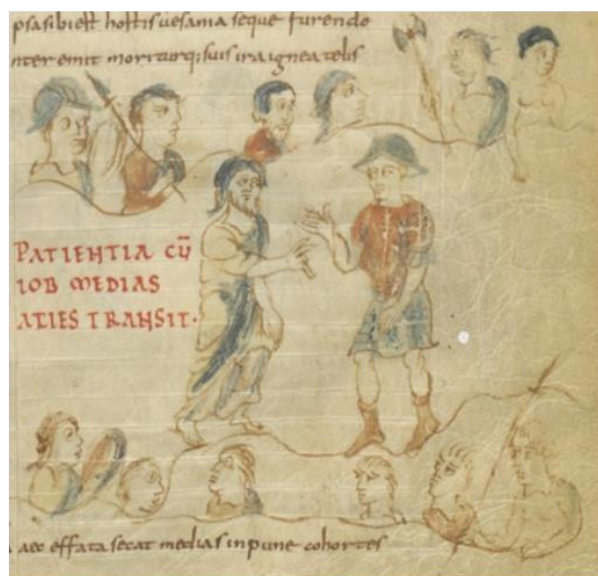 psa sibi est hostis vesania seque furendo
nter emit moriturq; suis ira ignea telis
PATIENTIA CŪ
IOB MEDIAS
ATIES TRANSIT·
aec effata secat medias inpune cohortes